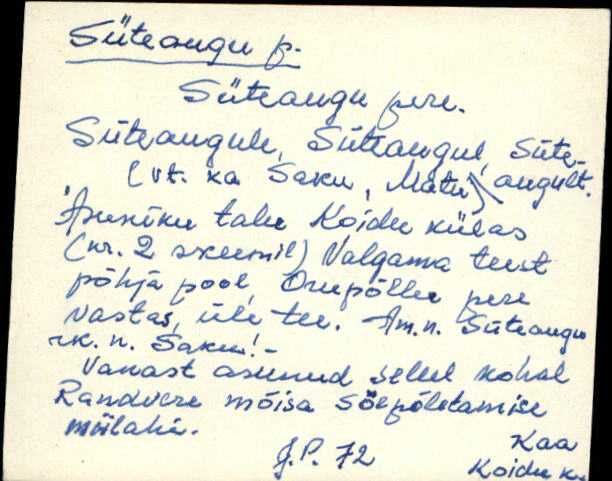 Süteaugu p.
Süteaugu pere.
Süteaugule, Süteaugul, Süte-
(vt. ka Saku, Matu) augult.
Asuniku talu Koidu külas
(nr. 2 skeemil) Valgama teest
põhja pool, Orupõllu pere
vastas, üle tee. Am.n. Süteaugu
rk. n. Saku! -
Vanast asunud sellel kohal
Randvere mõisa söepõletamise
miilahi.
J.P. 72
Kaa
Koidu k.